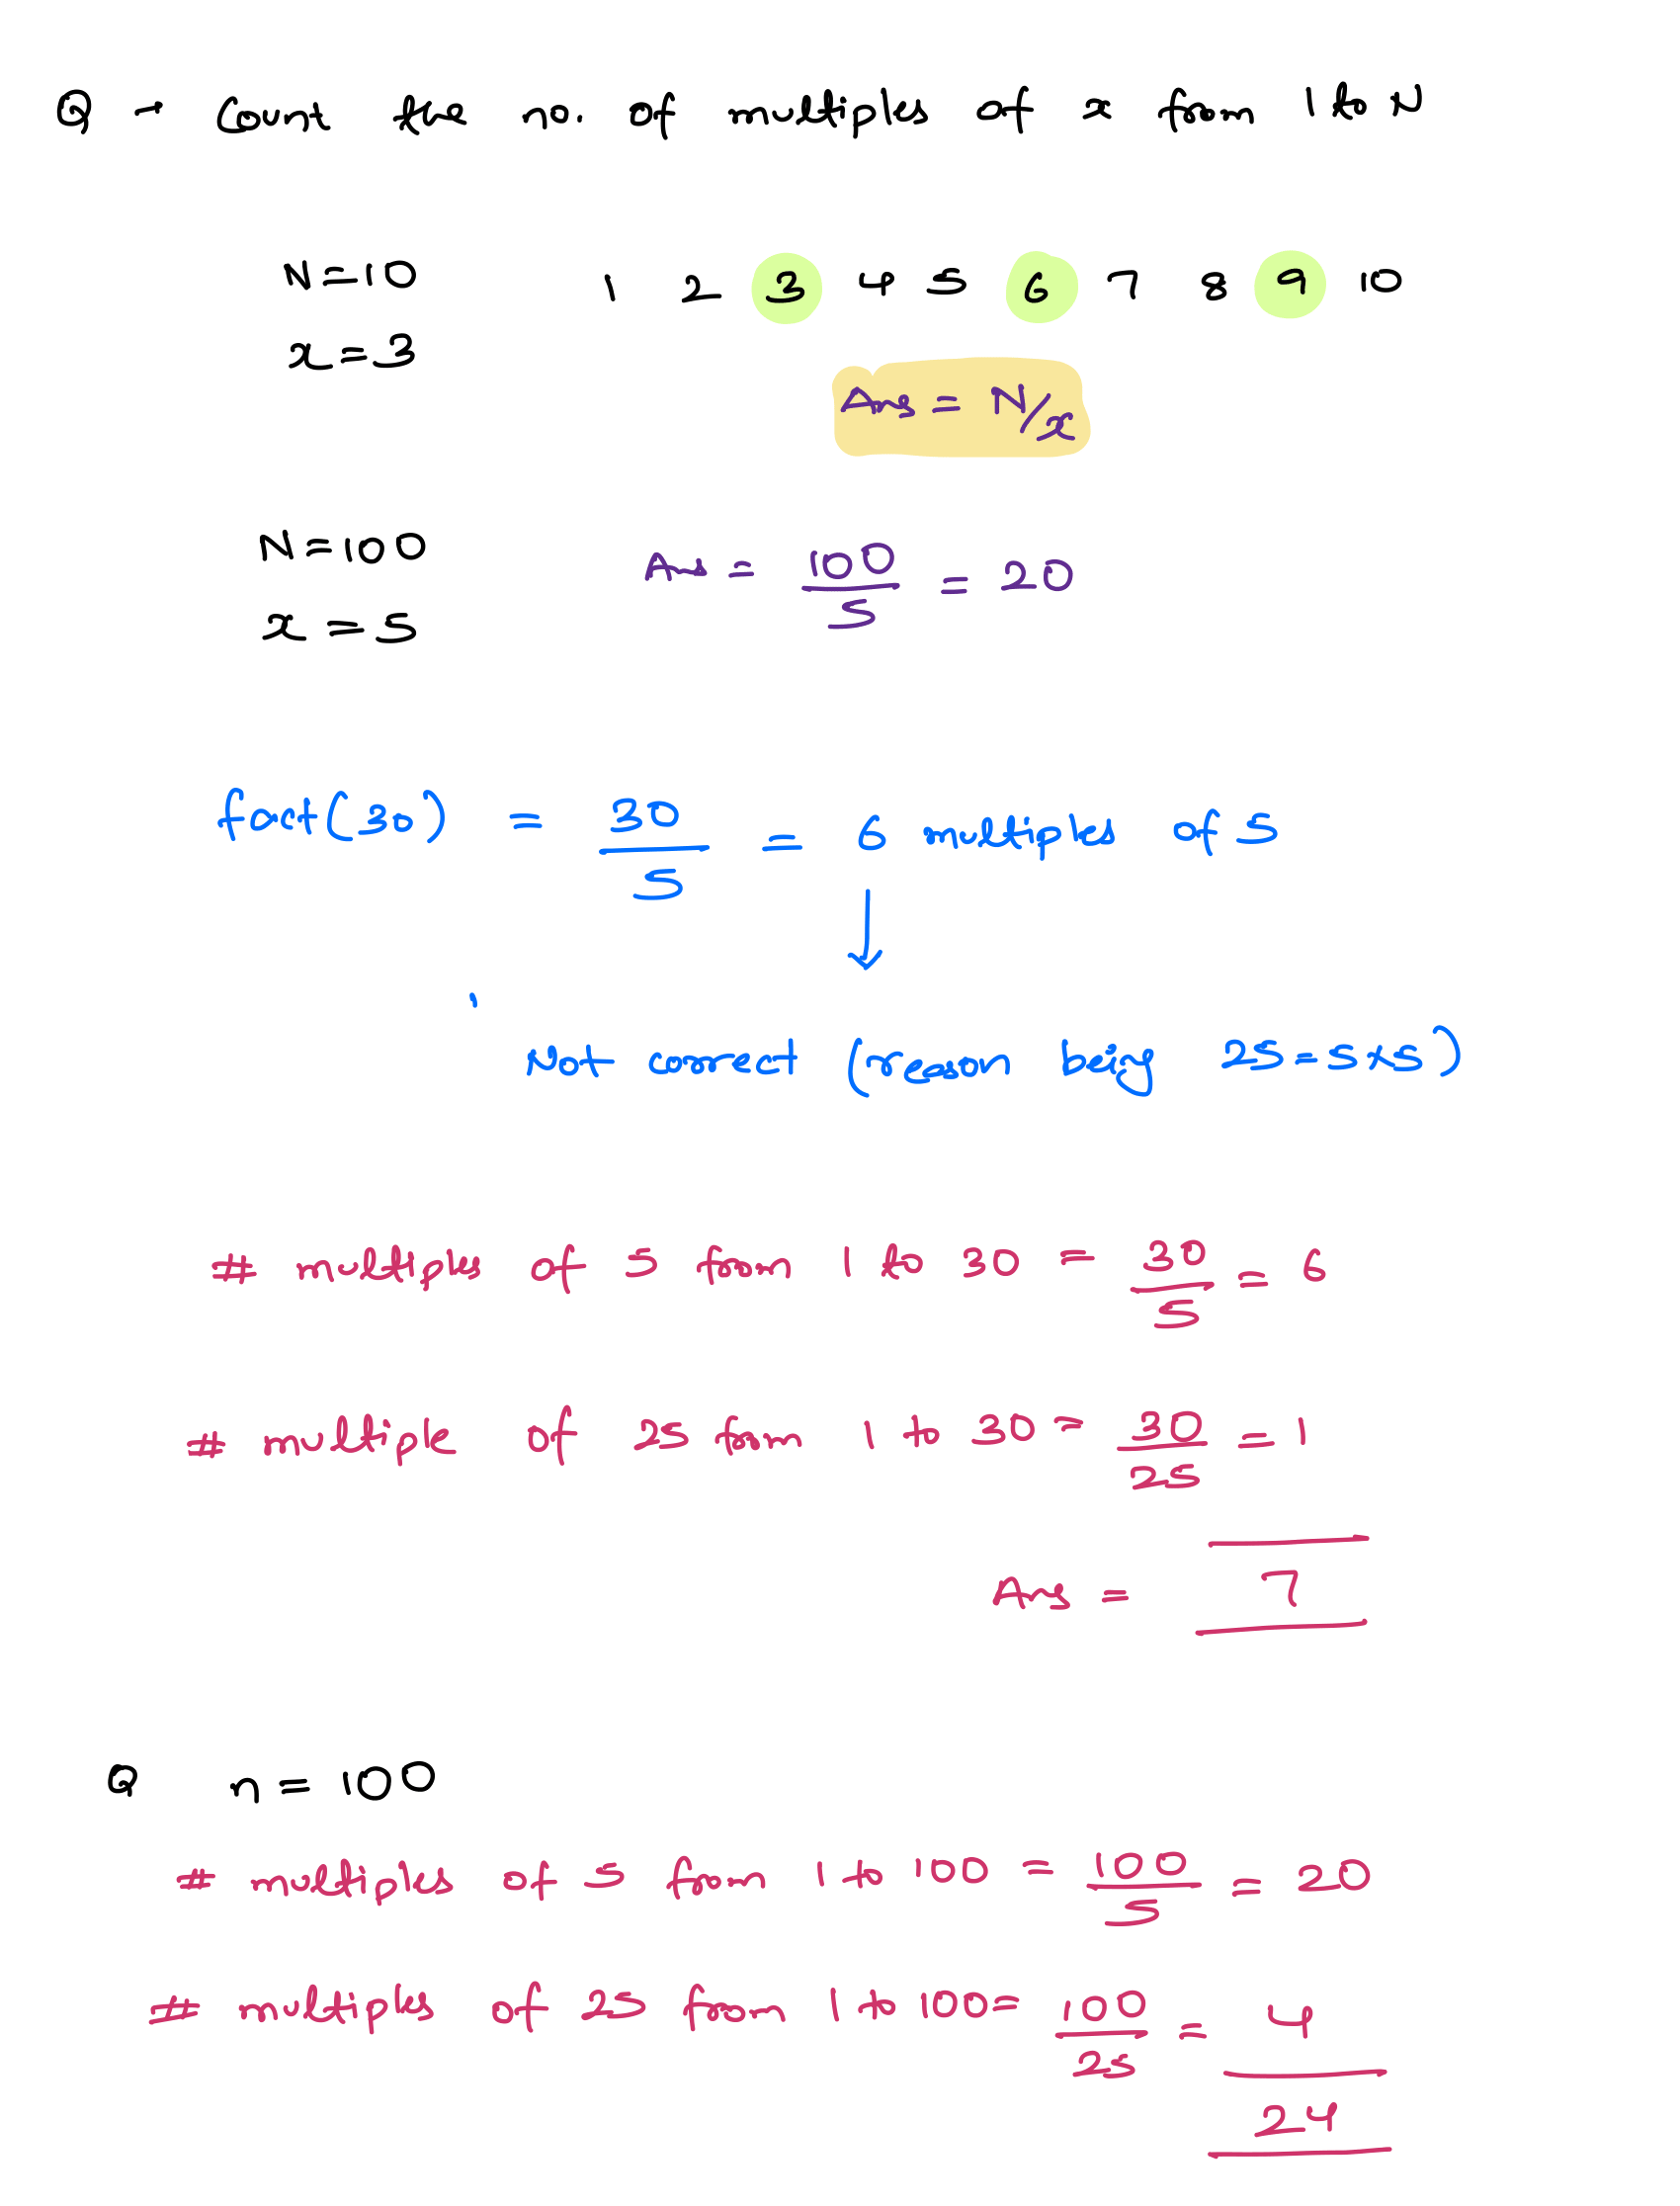 Q → Count the no. of multiples of x from 1 to N
N=10
1 2 3 4 5 6 7 8 9 10
x=3
Ans = N/x
N=100
Ans = 100/5 = 20
x=5
fact(30) = 30/5 = 6 multiples of 5
↓
Not correct (reason being 25=5x5)
# multiples of 5 from 1 to 30 = 30/5 = 6
# multiple of 25 from 1 to 30 = 30/25 = 1
Ans = 7
Q n=100
# multiples of 5 from 1 to 100 = 100/5 = 20
# multiples of 25 from 1 to 100 = 100/25 = 4
24